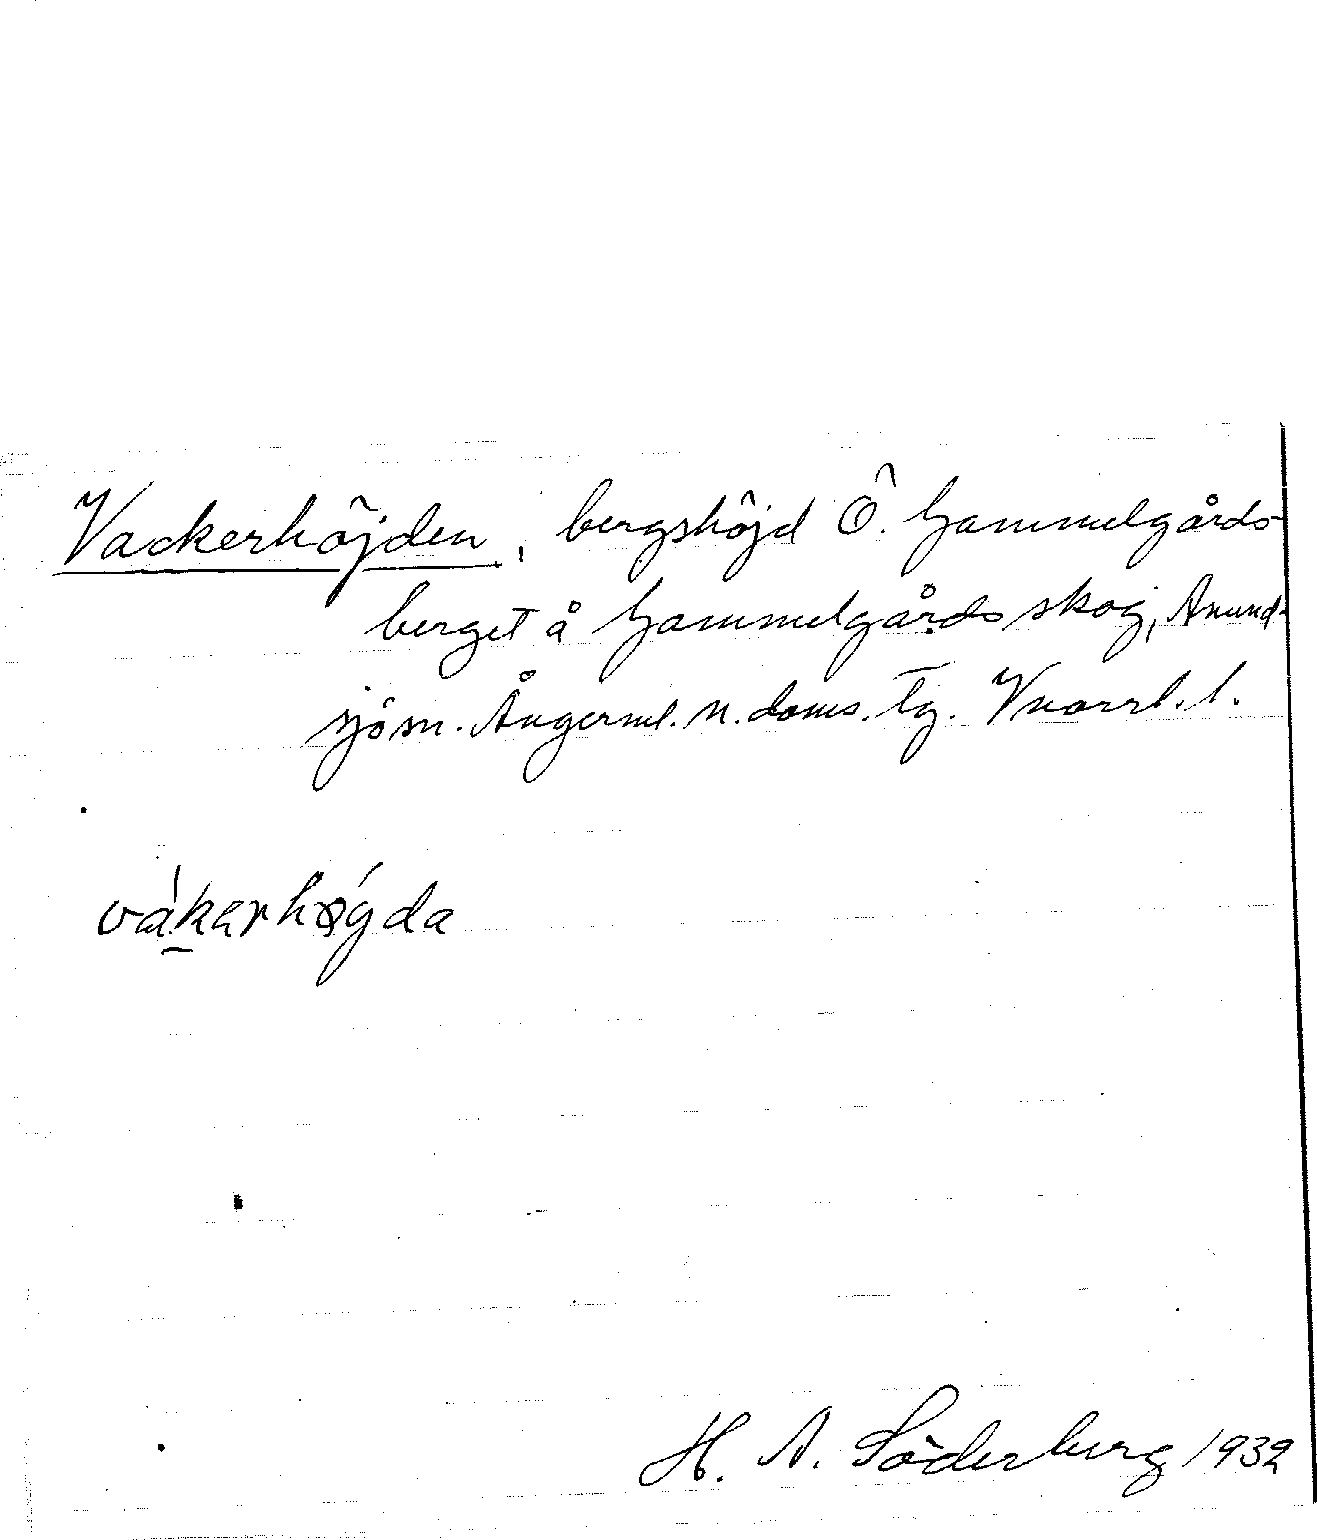 Vackerhöjden, bergshöjd Ö. Gammelgårds-
berget å Gammelgårds skog, Anund-
sjö sn. Ångerml. n. doms. tg. Vnorrl. l.
våkerhøgda
H. A. Söderberg 1932